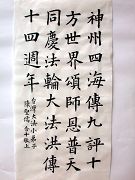 神州四海傳九評十
方世界頌師恩普天
同慶法輪大法洪傳
十四週年
台灣大法小弟子